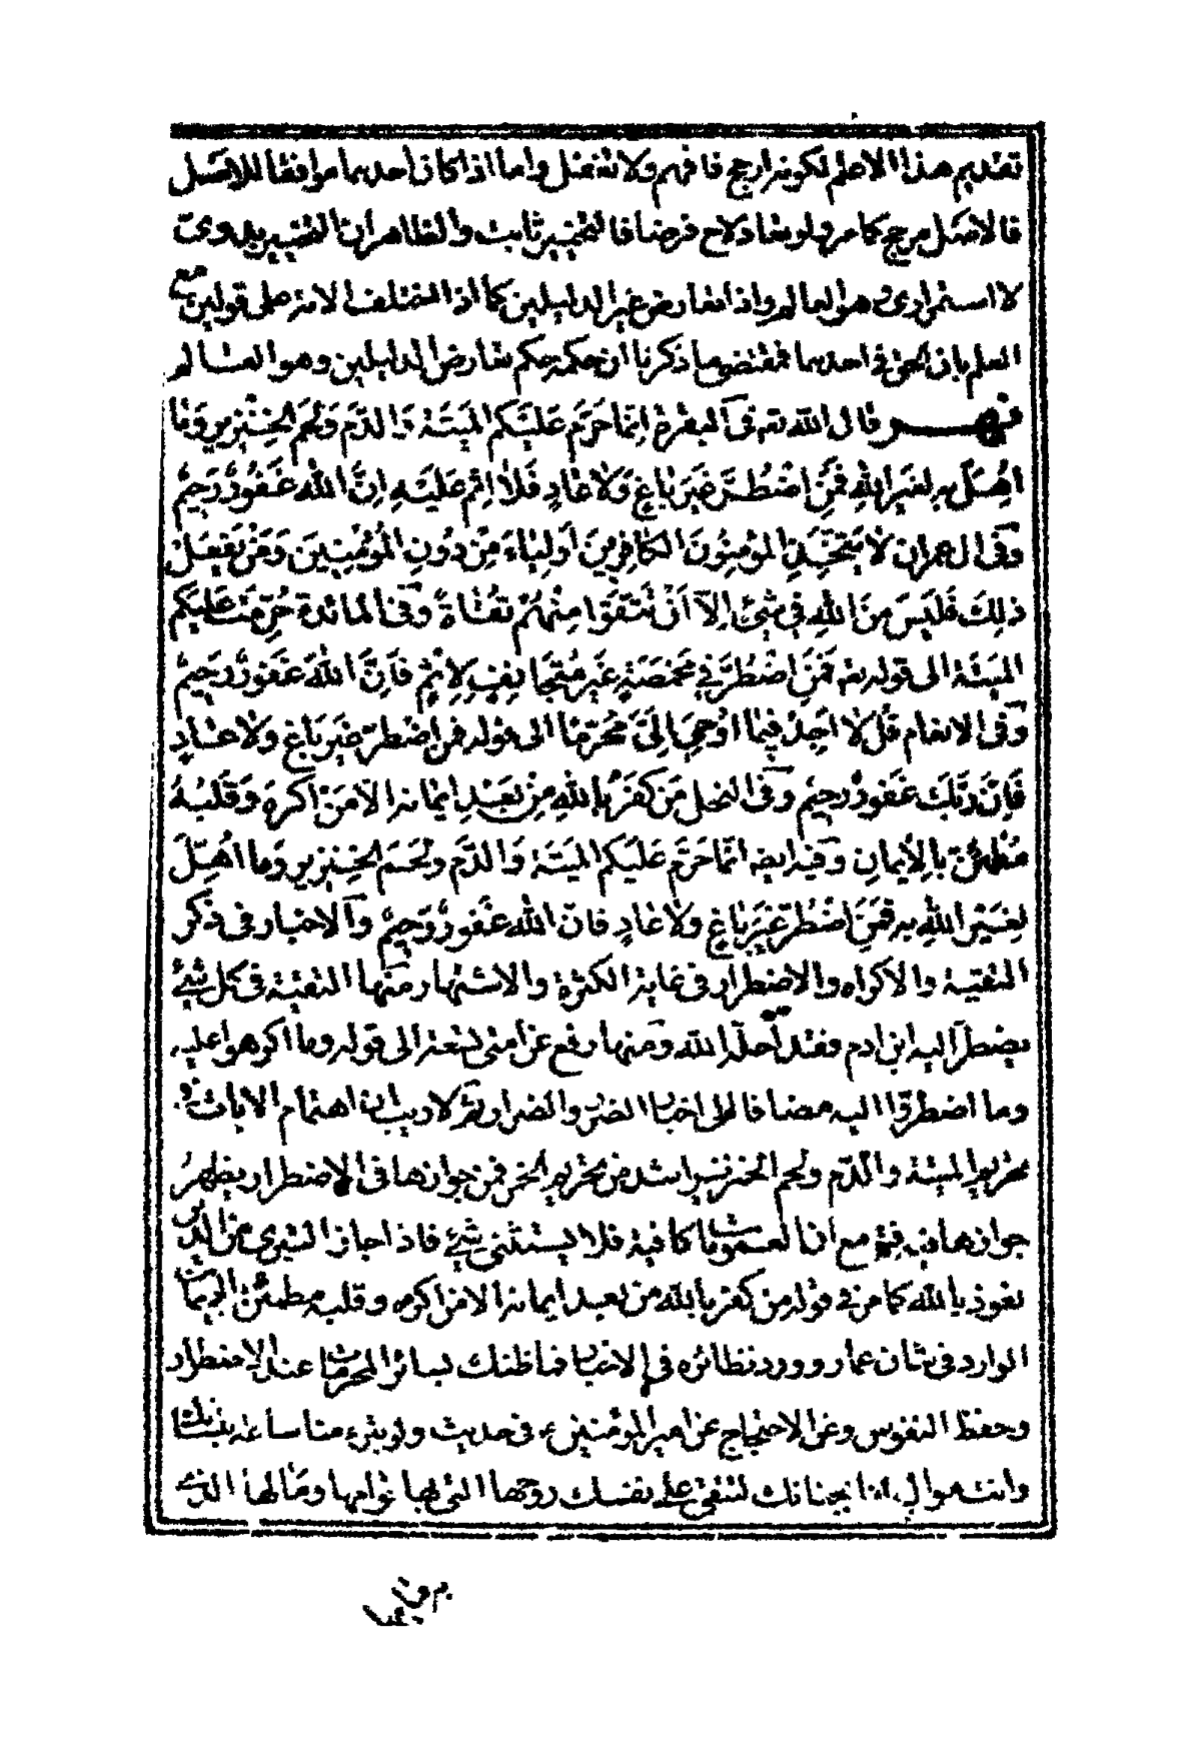 تقديم هذا الاعلم لكونه ارجح فافهم ولا تغفل واما اذا كان احدهما موافقا للاصل
فالاصل مرجح كما مر ولو تعادلا ح فرضا فالتخيير ثابت والظاهر ان التخيير بدوى
لا استمرارى وهو العالم واذا تعارض غير الدليلين كما اذا اختلف الامة على قولين مع
العلم بان الحق فى احدهما فمقتضى ما ذكرنا ان حكمه حكم تعارض الدليلين وهو العالم
قال الله تع فى البقرة اِنَّما حَرَّمَ عَلَيْكُم الْمَيْتَةَ وَالدَّمَ وَلَحْمَ الْخِنْزيرِ وَمٰا
اُهِلَّ بِهِ لِغَيْرِ اللهِ فَمَنِ اضْطُرَّ غَيْرَ بٰاغٍ وَلاٰ عٰادٍ فَلاٰ اِثْمَ عَلَيْهِ اِنَّ اللهَ غَفُورٌ رَحيمٌ
وفى ال عمران لاٰ يَتَّخِذِ المُؤمِنُونَ الكٰافِرينَ اَولِيٰاءَ مِنْ دُونِ الْمُؤْمِنينَ وَمَنْ يَفْعَلْ
ذٰلِكَ فَلَيْسَ مِنَ اللهِ فى شَئٍ اِلاّٰ اَنْ تَتَّقوا مِنْهُمْ تُقٰاةً وفى المائدة حُرِّمَت عَلَيكُم
المَيْتَة الى قوله تع فَمَنِ اضْطُرَّ فى مَخْمَصَةٍ غَيْرَ مُتَجٰانِفٍ لِاِثْمٍ فَاِنَّ اللهَ غَفورٌ رَحيمٌ
وفى الانعام قُلْ لاٰ اَجِدُ فيمٰا اوحِىَ اِلَىَّ مُحَرَّمًا الى قوله فمن اضْطرّ غَيرَ بٰاغٍ وَلاٰ عٰادٍ
فَاِنَّ رَبَّكَ غَفورٌ رحيمٌ وفى النحل مَن كَفَرَ بِاللهِ مِنْ بَعْدِ ايمٰانه الاّ مَنْ اُكْرِهَ وَقَلْبُهُ
مُطْمَئِنٌّ بِالاِيمانِ وفيه ايضا انّما حَرَّمَ عَلَيْكُم المَيتَةَ وَالدَّمَ ولَحْمَ الخِنزيرِ وَما اُهِلَّ
لِغَيْرِ اللهِ بِهِ فَمَنِ اضْطُرّ غَيرَ بٰاغٍ ولاٰ عٰادٍ فان الله غَفورٌ رَحيمٌ والاخبار فى ذكر
التقية والاكراه والاضطرار فى غاية الكثرة والاشتهار منها التقية فى كل شئ
يضطر اليه ابن ادم فقد احله الله ومنها رفع عن امتى تسعة الى قوله وما اكرهوا عليه
وما اضطرّوا اليه مضافا الى اخبار الضرر والضرار ثم لا ريب ان اهتمام الايات فى
تحريم الميتة والدّم ولحم الخنزير اشد من تحريم الخمر فمن جوازها فى الاضطرار يظهر
جوازها فيه مع ان العمومات كافية فلا يستثنى شئ فاذا جاز التبرى من الدين
نعوذ بالله كما مر فى قوله من كفر بالله من بعد ايمانه الا من اكره وقلبه مطمئن بالايمان
الوارد فى شان عمار وورد نظائره فى الاخبار فما ظنك بسائر المحرمات عند الاضطرار
وحفظ النفوس وعن الاحتجاج عن امير المؤمنين ع فى حديث ولو تبرء منا ساعة بلسانك
وانت موال لنا بجنانك لتتقى على نفسك روحها التى بها قوامها ومالها الذى